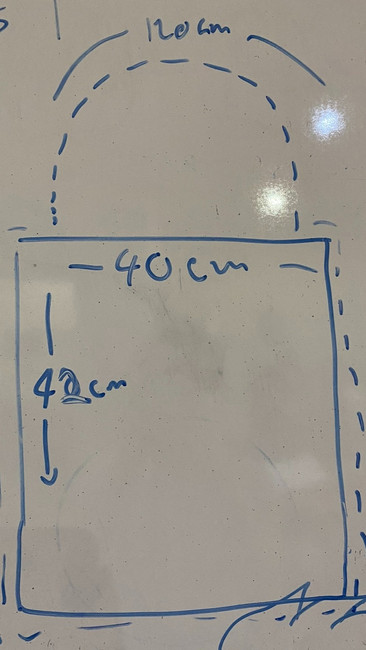 120cm
40cm
42cm